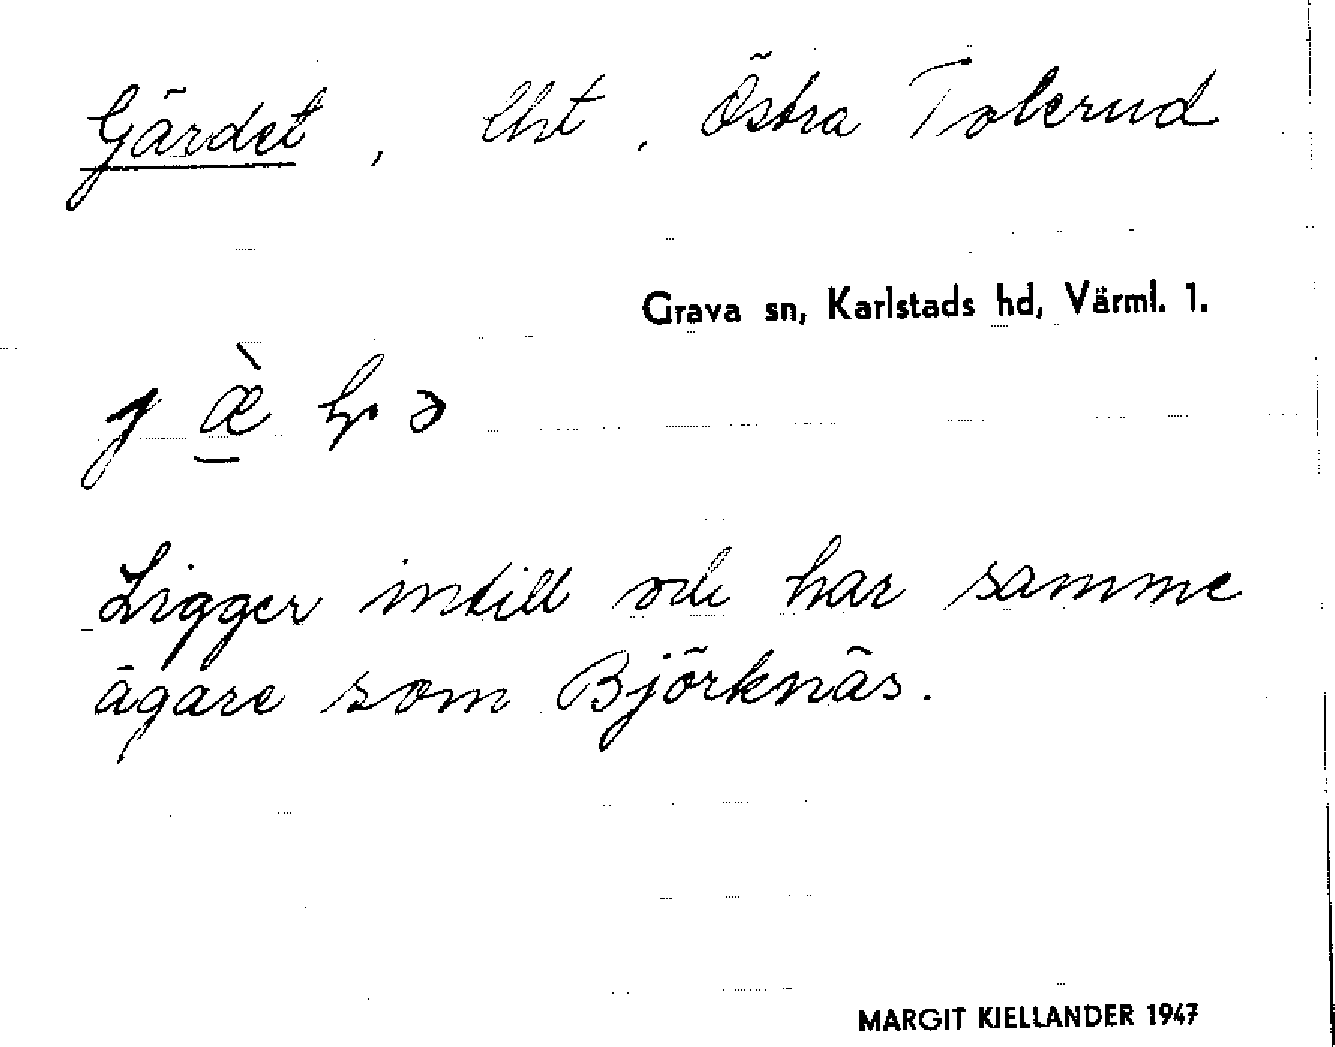 Gärdet, lht, Östra Tolerud
Grava sn, Karlstads hd, Värml. 1.
Ligger intill och har samme
ägare som Björknäs.
MARGIT KJELLANDER 1947